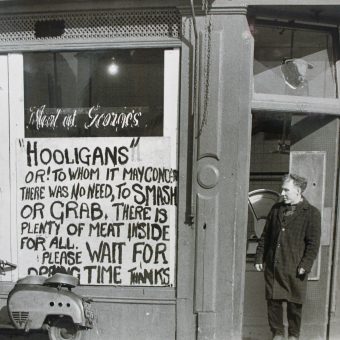 Meat at Georgie's
"HOOLIGANS"
OR! TO WHOM IT MAY CONCERN
THERE WAS NO NEED, TO SMASH
OR GRAB. THERE IS
PLENTY OF MEAT INSIDE
FOR ALL.
PLEASE WAIT FOR
OPENING TIME THANKS.